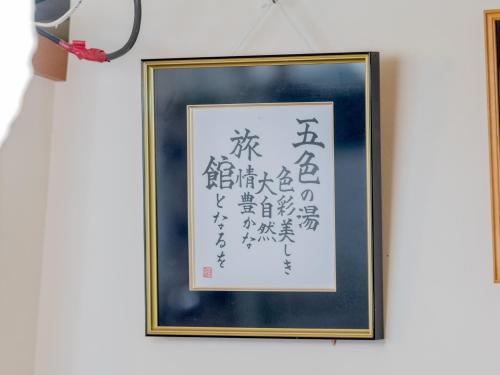 五色の湯
色彩美しき
大自然
旅情豊かな
館となるを